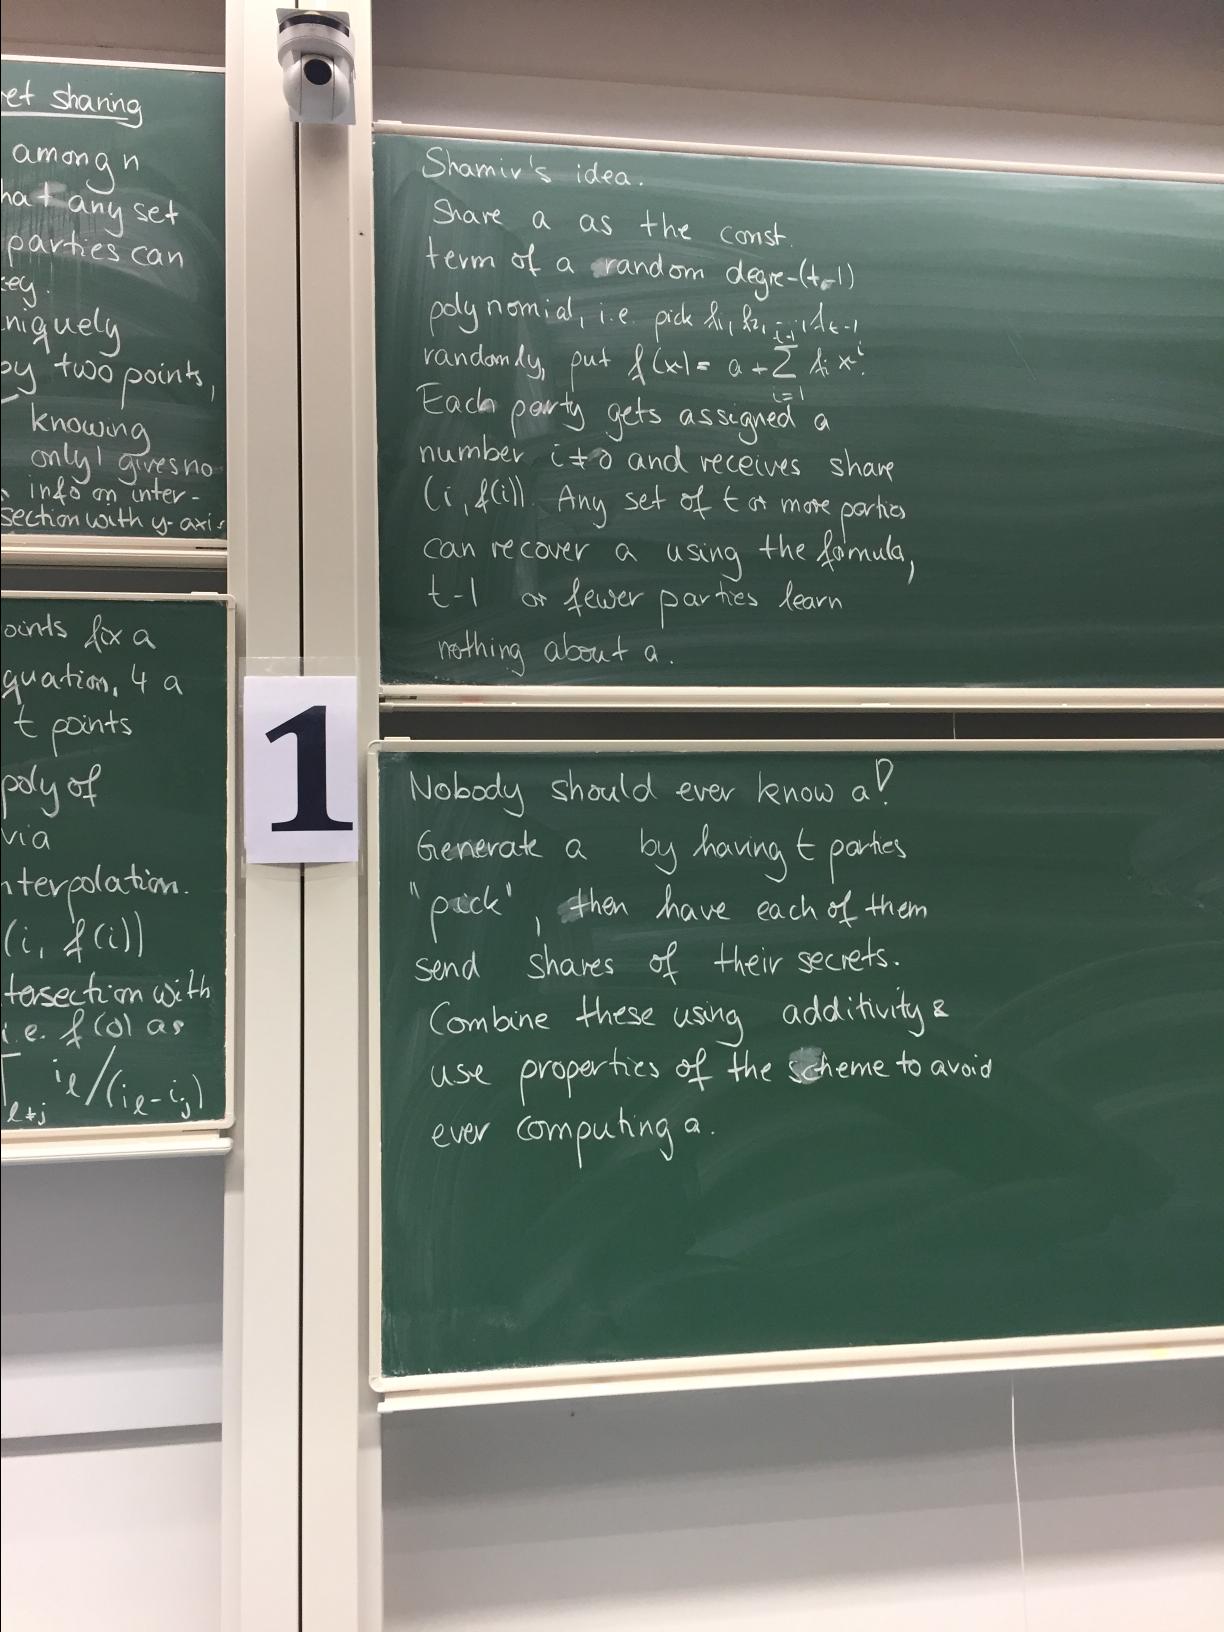 et sharing
among n
hat any set
parties can
ey.
niquely
by two points,
knowing
only 1 gives no
info on inter-
section with y-axis
oints fix a
quation, 4 a
t points
poly of
via
nterpolation.
(i, f(i))
tersection with
i.e. f(0) as
l≠j i_l/(i_l-i_j)
1
Shamir's idea.
Share a as the const.
term of a random degre-(t-1)
polynomial, i.e. pick f₁, f₂, ..., f_t-1
randomly, put f(x) = a + Σ_{i=1}^{t-1} f_i x^i.
Each party gets assigned a
number i≠0 and receives share
(i, f(i)). Any set of t or more parties
can recover a using the formula,
t-1 or fewer parties learn
nothing about a.
Nobody should ever know a!
Generate a by having t parties
"pick", then have each of them
send shares of their secrets.
Combine these using additivity &
use properties of the scheme to avoid
ever computing a.